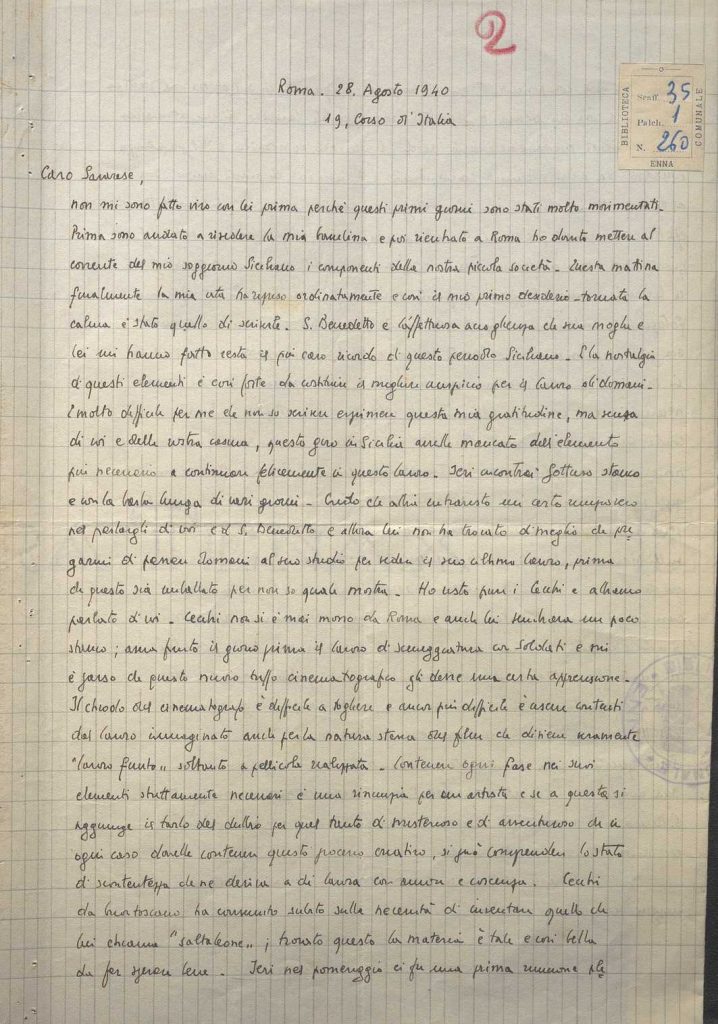 2
Roma. 28. Agosto 1940
19, Corso d'Italia
BIBLIOTECA
COMUNALE
Scaff. 35
Palch. 1
N. 260
ENNA
Caro Savarese,
non mi sono fatto vivo con lei prima perchè questi primi giorni sono stati molto movimentati.
Prima sono andato a rivedere la mia bambina e poi rientrato a Roma ho dovuto mettere al
corrente del mio soggiorno Siciliano i componenti della nostra piccola società. Questa mattina
finalmente la mia vita ha ripreso ordinatamente e così il mio primo desiderio tornata la
calma è stato quello di scriverle. S. Benedetto e l'affettuosa accoglienza che sua moglie e
lei mi hanno fatto resta il più caro ricordo di questo periodo Siciliano. E la nostalgia
di questi elementi è così forte da costituire il migliore auspicio per il lavoro di domani.
È molto difficile per me che non so scrivere esprimere questa mia gratitudine, ma senza
di voi e della vostra casina, questo giro in Sicilia avrebbe mancato dell'elemento
più necessario a continuare felicemente in questo lavoro. Ieri incontrai stanco
e con la barba lunga di vari giorni. Credo che abbia un certo
nel parlargli di voi e di S. Benedetto e allora lui non ha trovato di meglio che pre
garmi di passare domani al suo studio per vedere il suo ultimo lavoro, prima
che questo sia imballato per non so quale mostra. Ho visto pure i Cecchi e abbiamo
parlato di voi. Cecchi non si è mai mosso da Roma e anche lui sembrava un poco
stanco; aveva finito il giorno prima il lavoro di sceneggiatura con Soldati e mi
è parso che questo nuovo tuffo cinematografico gli desse una certa apprensione.
Il chiodo del cinematografo è difficile a togliere e ancor più difficile è essere contenti
del lavoro immaginato anche per la natura stessa del film che diviene veramente
"lavoro finito" soltanto a pellicola realizzata. Contenere ogni fase nei suoi
elementi strettamente necessari è una rinuncia per un artista e se a questa si
aggiunge il tarlo del dubbio per quel tanto di misterioso e di avventuroso che in
ogni caso dovrebbe contenere questo processo creativo, si può comprendere lo stato
di scontentezza che ne deriva a chi lavora con amore e coscienza. Cecchi
da buon toscano ha convenuto subito sulla necessità di inventare quello che
lui chiama "saltaleone"; trovato questo la materia è tale e così bella
da far sperare bene. Ieri nel pomeriggio ci fu una prima riunione